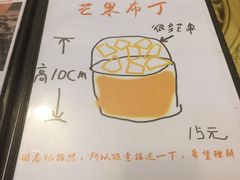 芒果布丁
很多芒果
高10CM
15元
因忘记拍照，所以随意描述一下，希望理解